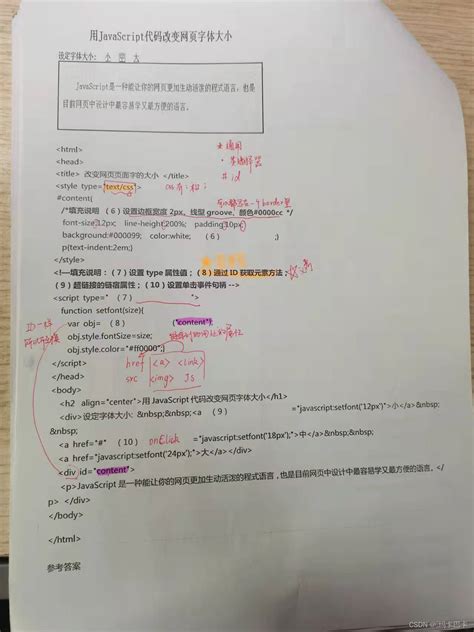 用JavaScript代码改变网页字体大小
设定字体大小: 小 中 大
JavaScript是一种能让你的网页更加生动活泼的程式语言,也是
目前网页中设计中最容易学又最方便的语言。
<html>
<head>
<title> 改变网页页面字的大小 </title>
<style type="text/css">
#content(
/*填充说明 (6)设置边框宽度 2px、线型 groove、颜色#0000cc */
font-size:12px; line-height:200%; padding:10px;
background:#000099; color:white; (6) ;}
p{text-indent:2em;}
</style>
★ 通用
· 类选择器
# id
<!—填充说明:(7)设置 type 属性值;(8)通过 ID 获取元素方法;
(9)超链接的链宿属性;(10)设置单击事件句柄 -->
<script type=" (7) ">
function setfont(size){
var obj= (8) ("content");
obj.style.fontSize=size;
obj.style.color="#ff0000";}
</script>
</head>
ID一样
href <a> <link>
src <img> Js
<body>
<h2 align="center">用 JavaScript 代码改变网页字体大小</h1>
<div>设定字体大小: &nbsp;&nbsp;<a (9) ="javascript:setfont('12px')">小</a>&nbsp;
&nbsp;
<a href="#" (10) onClick ="javascript:setfont('18px');">中</a>&nbsp;&nbsp;
<a href="javascript:setfont('24px');">大</a></div>
<div id="content">
<p>JavaScript 是一种能让你的网页更加生动活泼的程式语言,也是目前网页中设计中最容易学又最方便的语言。</
p> </div>
</body>
</html>
参考答案